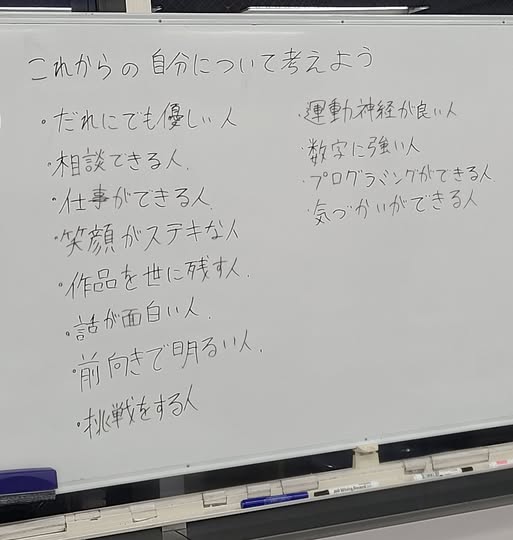 これからの自分について考えよう
・だれにでも優しい人
・相談できる人.
・仕事ができる人.
・笑顔がステキな人
・作品を世に残す人.
・話が面白い人.
・前向きで明るい人.
・挑戦をする人
・運動神経が良い人
・数字に強い人
・プログラミングができる人
・気づかいができる人